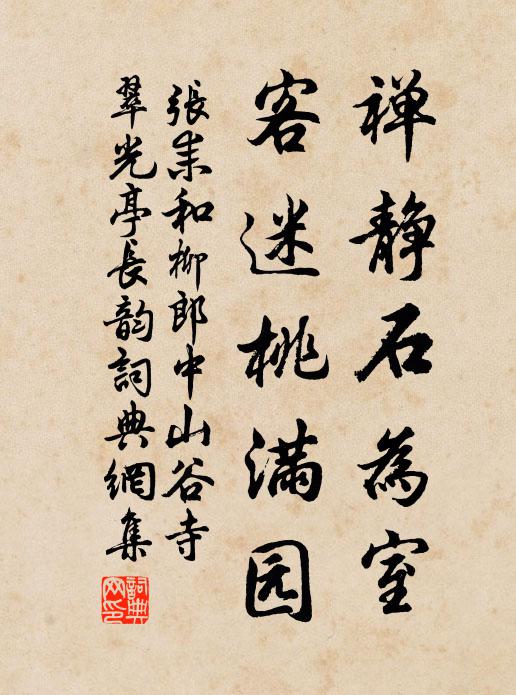 禅静石為室
客迷桃满园
張耒和柳郎中山谷寺
翠光亭長韵詞典網集
詞典網印